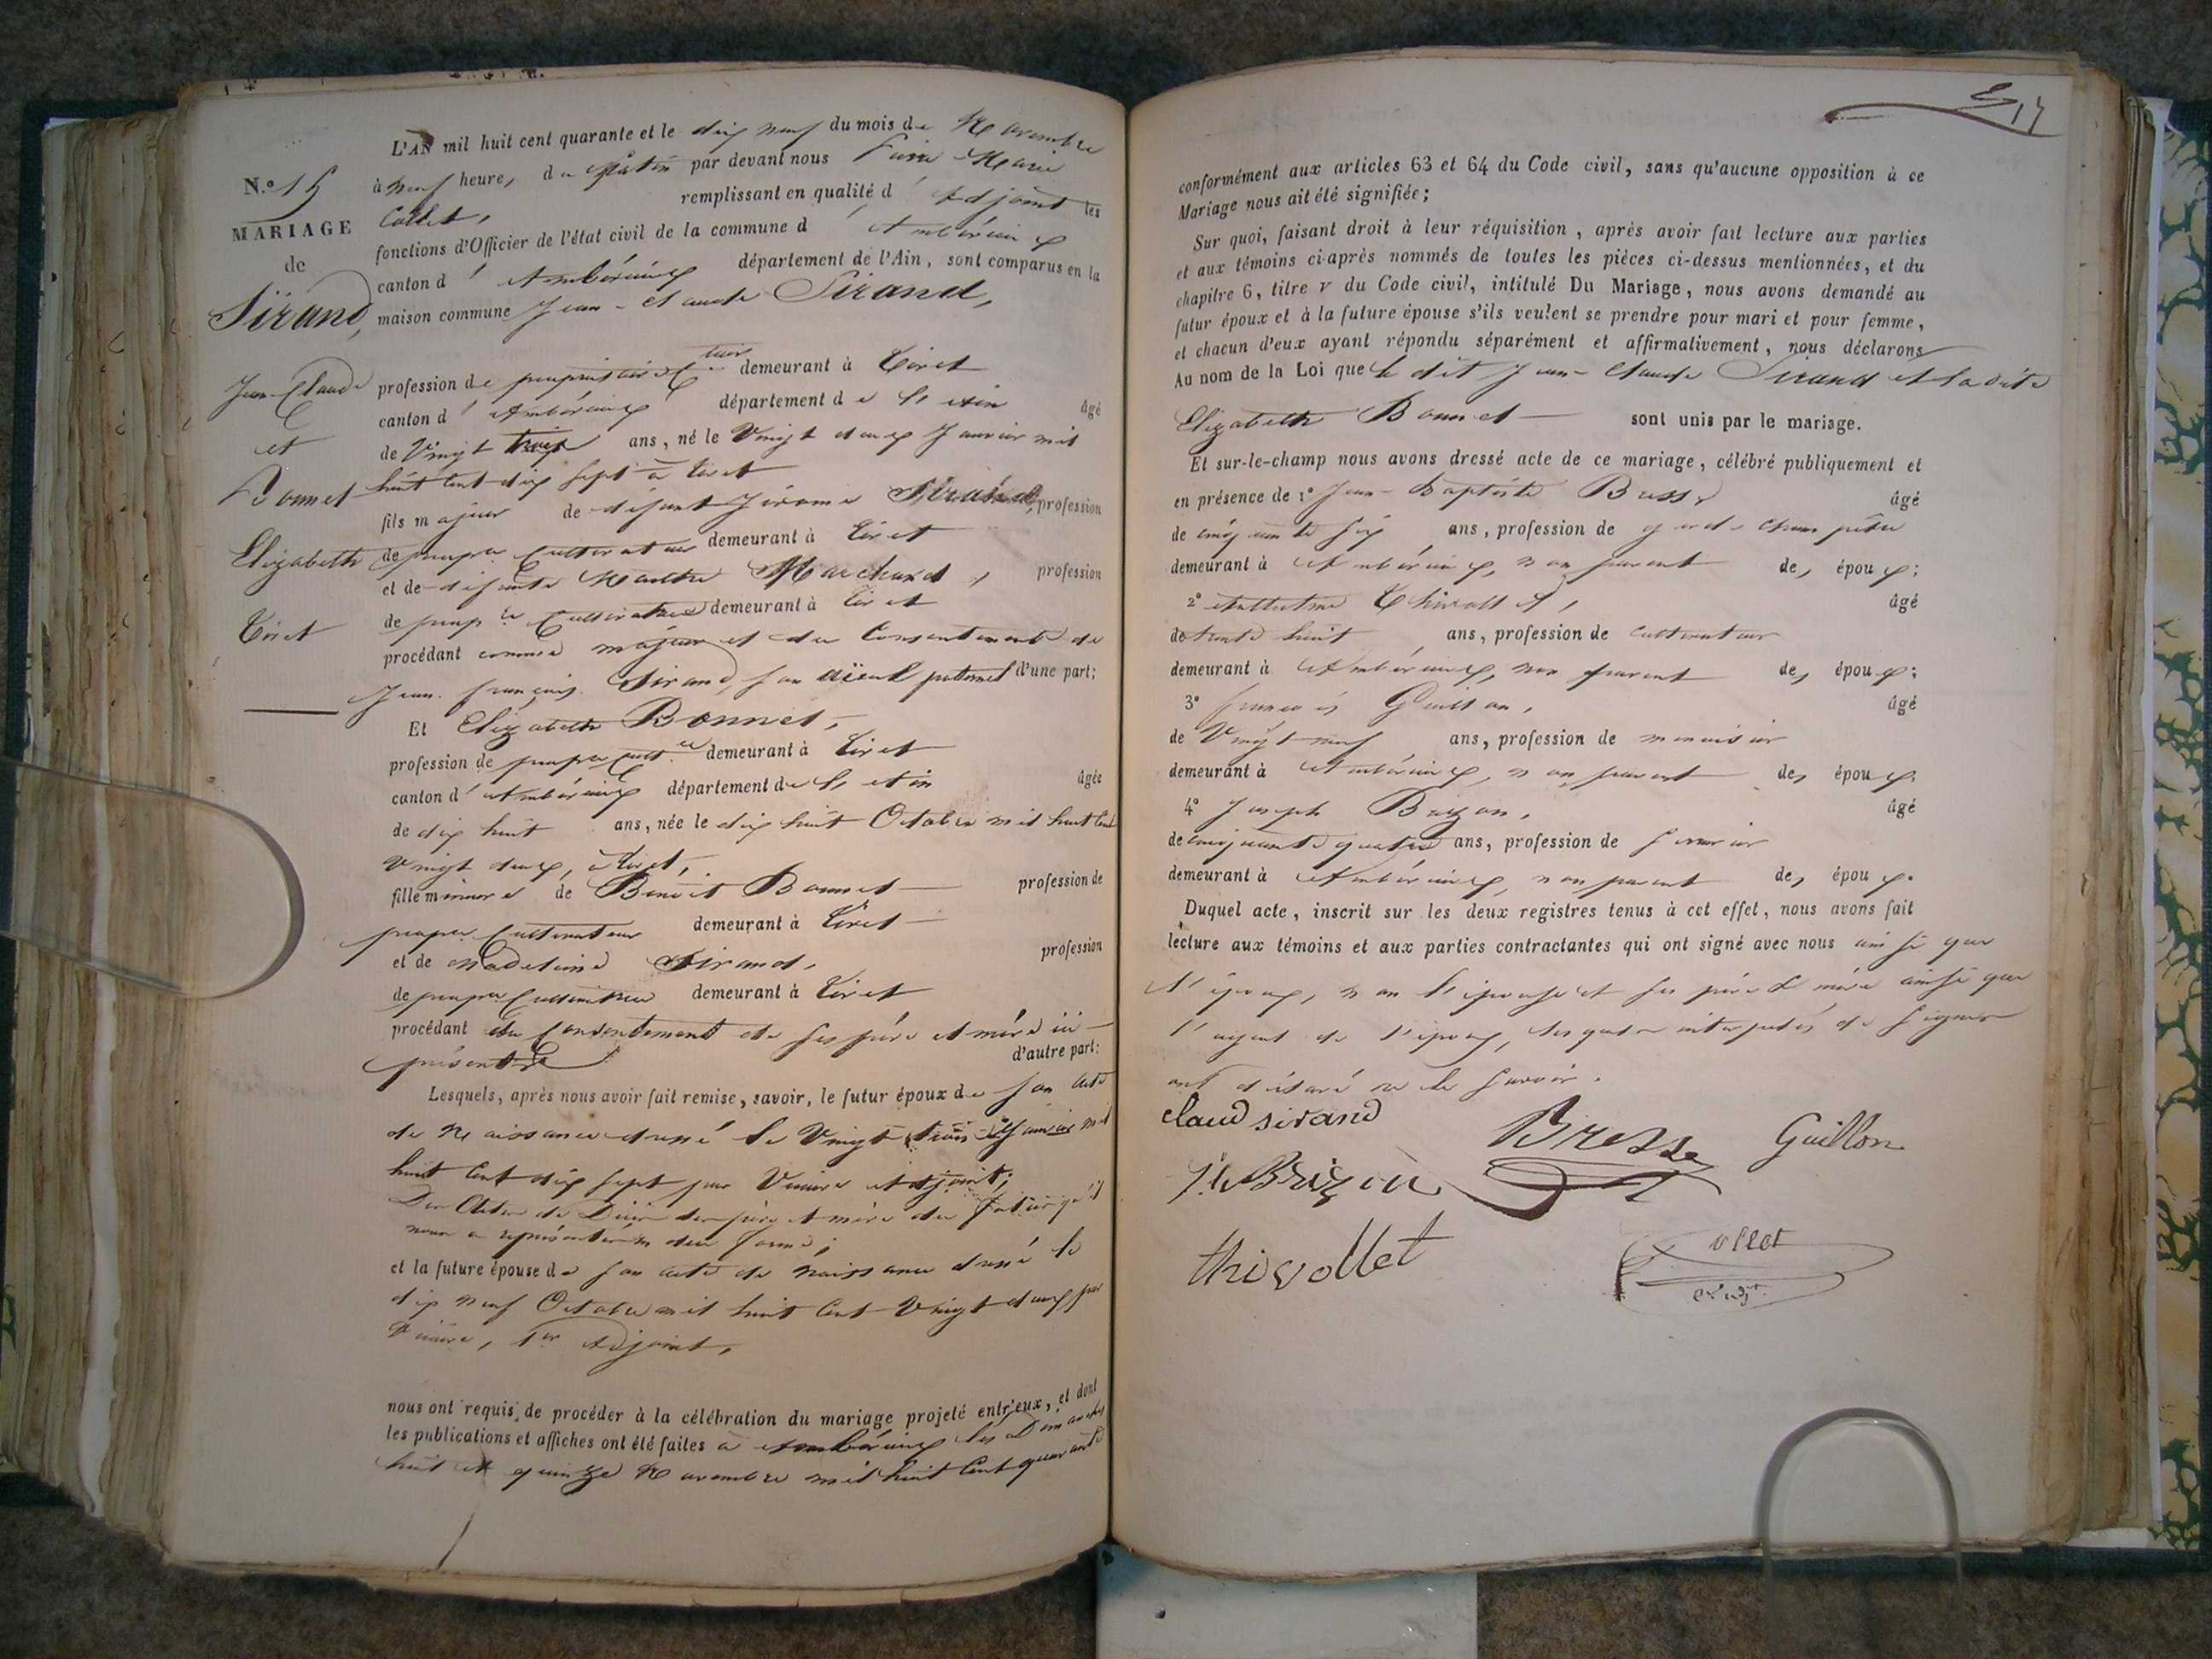 L'AN mil huit cent quarante et le dix neuf du mois de Novembre
N.º 15
à neuf heure, du Matin par devant nous Marie
Collet, remplissant en qualité d' Adjoint les
MARIAGE
fonctions d'Officier de l'état civil de la commune d' Ambérieux
de
canton d' Ambérieux département de l'Ain, sont comparus en la
Sirand,
maison commune Jean-Claude Sirand,
Jean-Claude
profession de propriétaire demeurant à Tiret
canton d' Ambérieux département de l'Ain âgé
et
de Vingt trois ans, né le Vingt deux Janvier mil
Bonnet
huit cent dix sept à Tiret
fils majeur de défunt Jérome Sirand, profession
Elizabeth
de propre Cultivateur demeurant à Tiret
et de défunte Marchand, profession
Tiret
de propre Cultivatrice demeurant à Tiret
procédant comme majeur et du Consentement de
Jean-françois Sirand, son aïeul paternel d'une part;
Et Elizabeth Bonnet,
profession de propre cult.ce demeurant à Tiret
canton d' Ambérieux département de l'Ain âgée
de dix huit ans, née le dix huit Octobre mil huit Cent
Vingt deux, à Tiret,
fille mineure de Benoit Bonnet profession de
propre Cultivateur demeurant à Tiret
et de Madeleine Sirand, profession
de propre Cultivatrice demeurant à Tiret
procédant du Consentement de ses père et mère ici
présents d'autre part:
Lesquels, après nous avoir fait remise, savoir, le futur époux de son acte
de Naissance dressé le Vingt trois Janvier mil
huit Cent dix sept par Adjoint;
Des Actes de Décès des père et mère du futur qu'il
nous a représentés en due forme;
et la future épouse de son acte de naissance dressé le
dix neuf Octobre mil huit Cent Vingt deux par
1er Adjoint,
nous ont requis de procéder à la célébration du mariage projeté entr'eux, et dont
les publications et affiches ont été faites à Ambérieux les Dimanches
huit et quinze Novembre mil huit Cent quarante
conformément aux articles 63 et 64 du Code civil, sans qu'aucune opposition à ce
Mariage nous ait été signifiée;
Sur quoi, faisant droit à leur réquisition, après avoir fait lecture aux parties
et aux témoins ci-après nommés de toutes les pièces ci-dessus mentionnées, et du
chapitre 6, titre v du Code civil, intitulé Du Mariage, nous avons demandé au
futur époux et à la future épouse s'ils veulent se prendre pour mari et pour femme,
et chacun d'eux ayant répondu séparément et affirmativement, nous déclarons
Au nom de la Loi que le dit Jean-Claude Sirand et la dite
Elizabeth Bonnet sont unis par le mariage.
Et sur-le-champ nous avons dressé acte de ce mariage, célébré publiquement et
en présence de 1º Jean-Baptiste Bresse âgé
de cinquante six ans, profession de garde champêtre
demeurant à Ambérieux, non parent des époux;
2º Anthelme Thivollet, âgé
de trente huit ans, profession de cultivateur
demeurant à Ambérieux, non parent des époux;
3º françois Guillon, âgé
de Vingt neuf ans, profession de menuisier
demeurant à Ambérieux, non parent des époux;
4º Joseph Brizon, âgé
de cinquante quatre ans, profession de serrurier
demeurant à Ambérieux, non parent des époux.
Duquel acte, inscrit sur les deux registres tenus à cet effet, nous avons fait
lecture aux témoins et aux parties contractantes qui ont signé avec nous ainsi que
l'époux, non l'épouse et ses père & mère ainsi que
l'aïeul de l'époux, de signer
ont déclaré ne le savoir.
claud sirand
Bresse
Guillon
thivollet
ollet